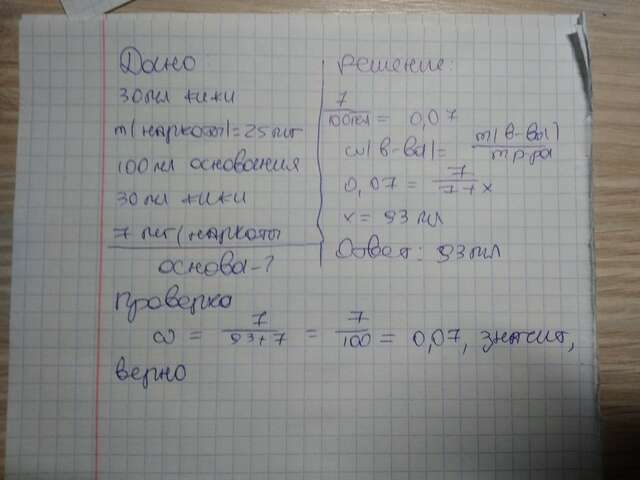 Дано
30мл жижи
m(наркоты)=25мг
100мл основания
30мл жижи
7 мг (наркоты
основа-?
Решение:
7/100мл = 0,07
ω(в-ва)= m(в-ва)/m р-ра
0,07 = 7/7+x
x = 93 мл
Ответ: 93мл
Проверка
ω = 7/93+7 = 7/100 = 0,07, значит,
верно